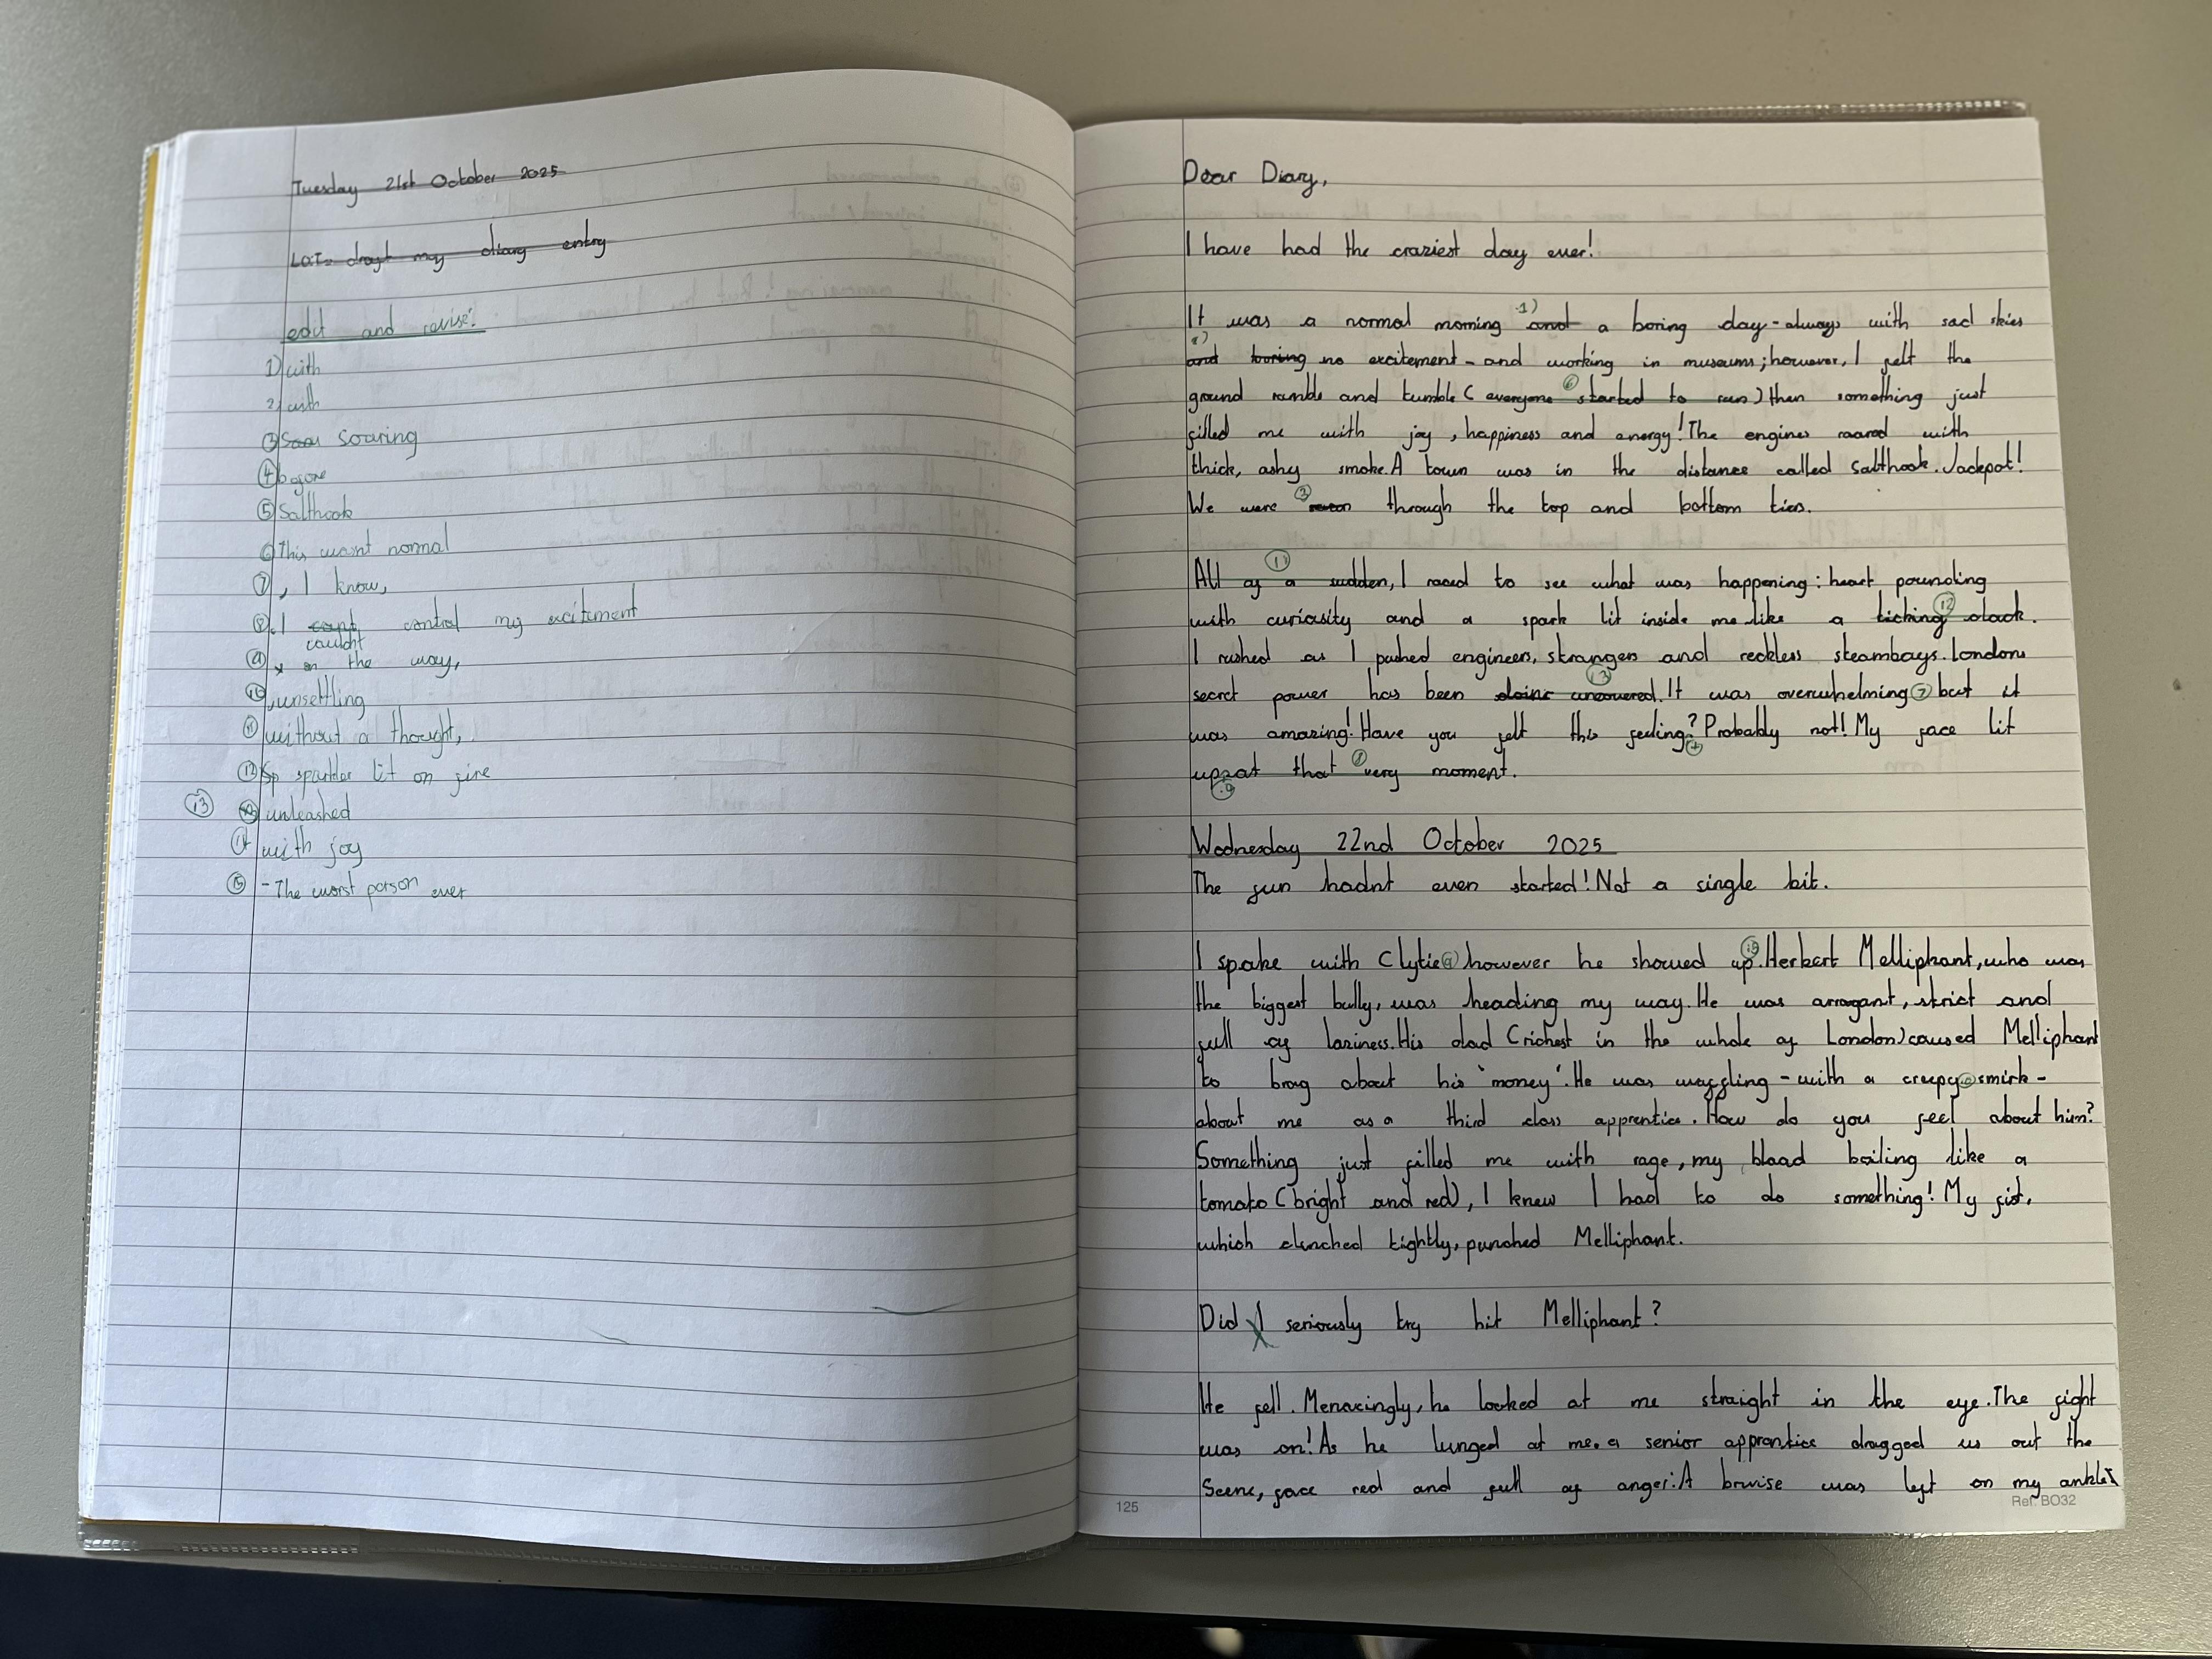 Tuesday 21st October 2025
LOI= draft my diary entry
edit and revise:
1) with
2) with
③ Soar Soaring
④ before
⑤ Salthook
⑥ This wasnt normal
⑦ , I know,
⑧ . I cant control my excitement
caught
⑨ on the way,
⑩ , unsettling
⑪ without a thought,
⑫ Sp sparkler lit on fire
⑬ unleashed
⑭ with joy
⑮ - The worst person ever
Dear Diary,
I have had the craziest day ever!
1)
It was a normal morning and a boring day - always with sad skies
2)
and boring no excitement - and working in museums; however, I felt the
ground rumble and tumble ( everyone ⑥ started to run) then something just
filled me with joy, happiness and energy! The engines roared with
thick, ashy smoke. A town was in the distance called Salthook. Jackpot!
We were ③ through the top and bottom tiers.
⑪
All of a sudden, I raced to see what was happening: heart pounding
with curiosity and a spark lit inside me like a ticking ⑫ clock.
I rushed as I pushed engineers, strangers and reckless steamboys. Londons
⑬
secret power has been uncovered. It was overwhelming ⑦ but it
was amazing! Have you felt this feeling? ④ Probably not! My face lit
up at that ⑧ very moment.
Wednesday 22nd October 2025
The fun hadnt even started! Not a single bit.
I spoke with Clytie ⑨ however he showed up ⑮. Herbert Melliphant, who was
the biggest bully, was heading my way. He was arragant, strict and
full of laziness. His dad (richest in the whole of London) caused Melliphant
to brag about his 'money'. He was waffling - with a creepy ⑩ smirk -
about me as a third class apprentice. How do you feel about him?
Something just filled me with rage, my blood boiling like a
tomato (bright and red), I knew I had to do something! My fist,
which clenched tightly, punched Melliphant.
Did I seriously try hit Melliphant?
He fell. Menacingly, he looked at me straight in the eye. The fight
was on! As he lunged at me, a senior apprentice dragged us out the
Scene, face red and full of anger: A brwise was left on my ankle
125
Ref: BO32